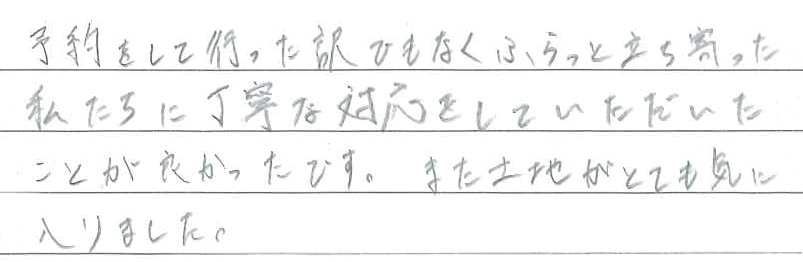 予約をして行った訳でもなくふらっと立ち寄った
私たちに丁寧な対応をしていただいた
ことが良かったです。また土地がとても気に
入りました。